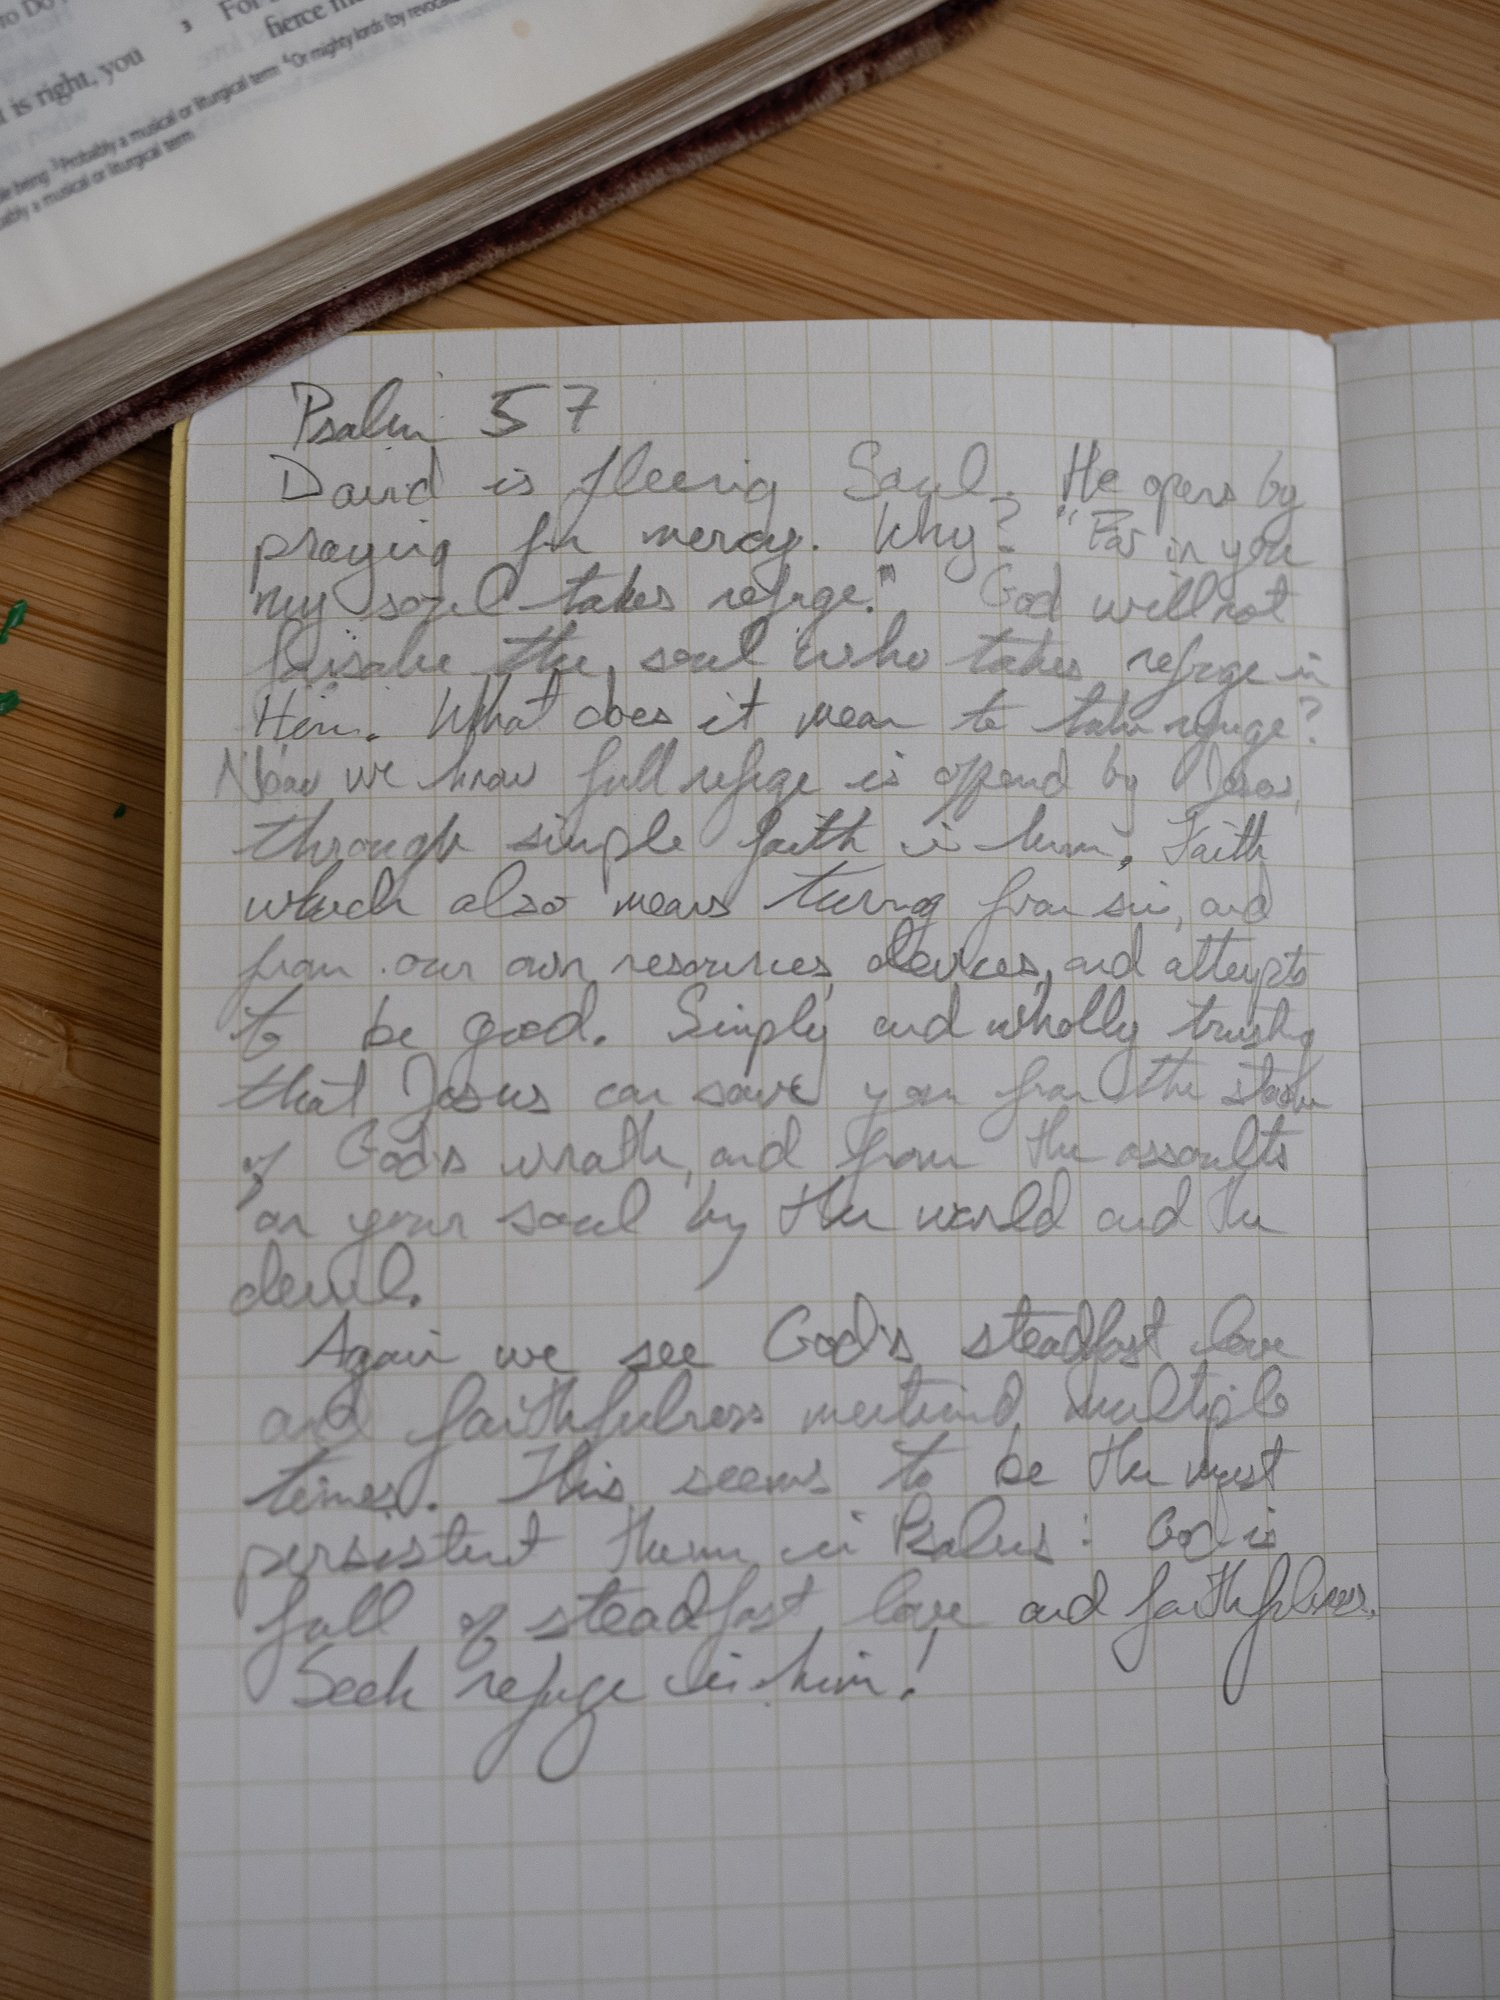 to Do
t is right, you
3 For
fierce
ble being 3Probably a musical or liturgical term 4Or mighty lords (by revocal
bably a musical or liturgical term
Psalm 57
David is fleeing Saul. He opens by
praying for mercy. Why? "For in you
my soul takes refuge." God will not
forsake the soul who takes refuge in
Him. What does it mean to take refuge?
Now we know full refuge is offered by Jesus,
through simple faith in him. Faith
which also means turning from sin, and
from our own resources, devices, and attempts
to be good. Simply and wholly trusting
that Jesus can save you from the
of God's wrath, and from the assaults
on your soul by the world and the
devil.
Again we see God's steadfast love
and faithfulness mentioned multiple
times. This seems to be the most
persistent theme in Psalms: God is
full of steadfast love and faithfulness.
Seek refuge in him!